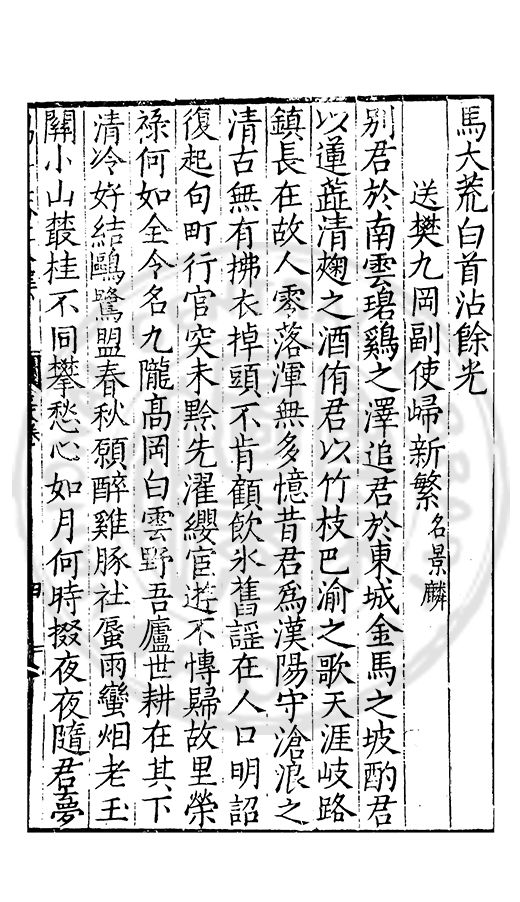 馬大荒白首沾餘光
送樊九岡副使歸新繁名景麟
别君於南雲碧鷄之澤追君於東城金馬之坡酌君
以蓮蘂清麹之酒侑君以竹枝巴渝之歌天涯岐路
鎮長在故人零落渾無多憶昔君爲漢陽守滄浪之
清古無有拂衣掉頭不肯顧飲氷舊謡在人口明詔
復起句町行官突未黔先濯纓宦遊不慱歸故里榮
祿何如全令名九隴髙岡白雲野吾廬世耕在其下
清泠好結鷗鷺盟春秋願醉雞豚社蜑雨蠻烟老玉
關小山䕺桂不同攀愁心如月何時掇夜夜隨君夢